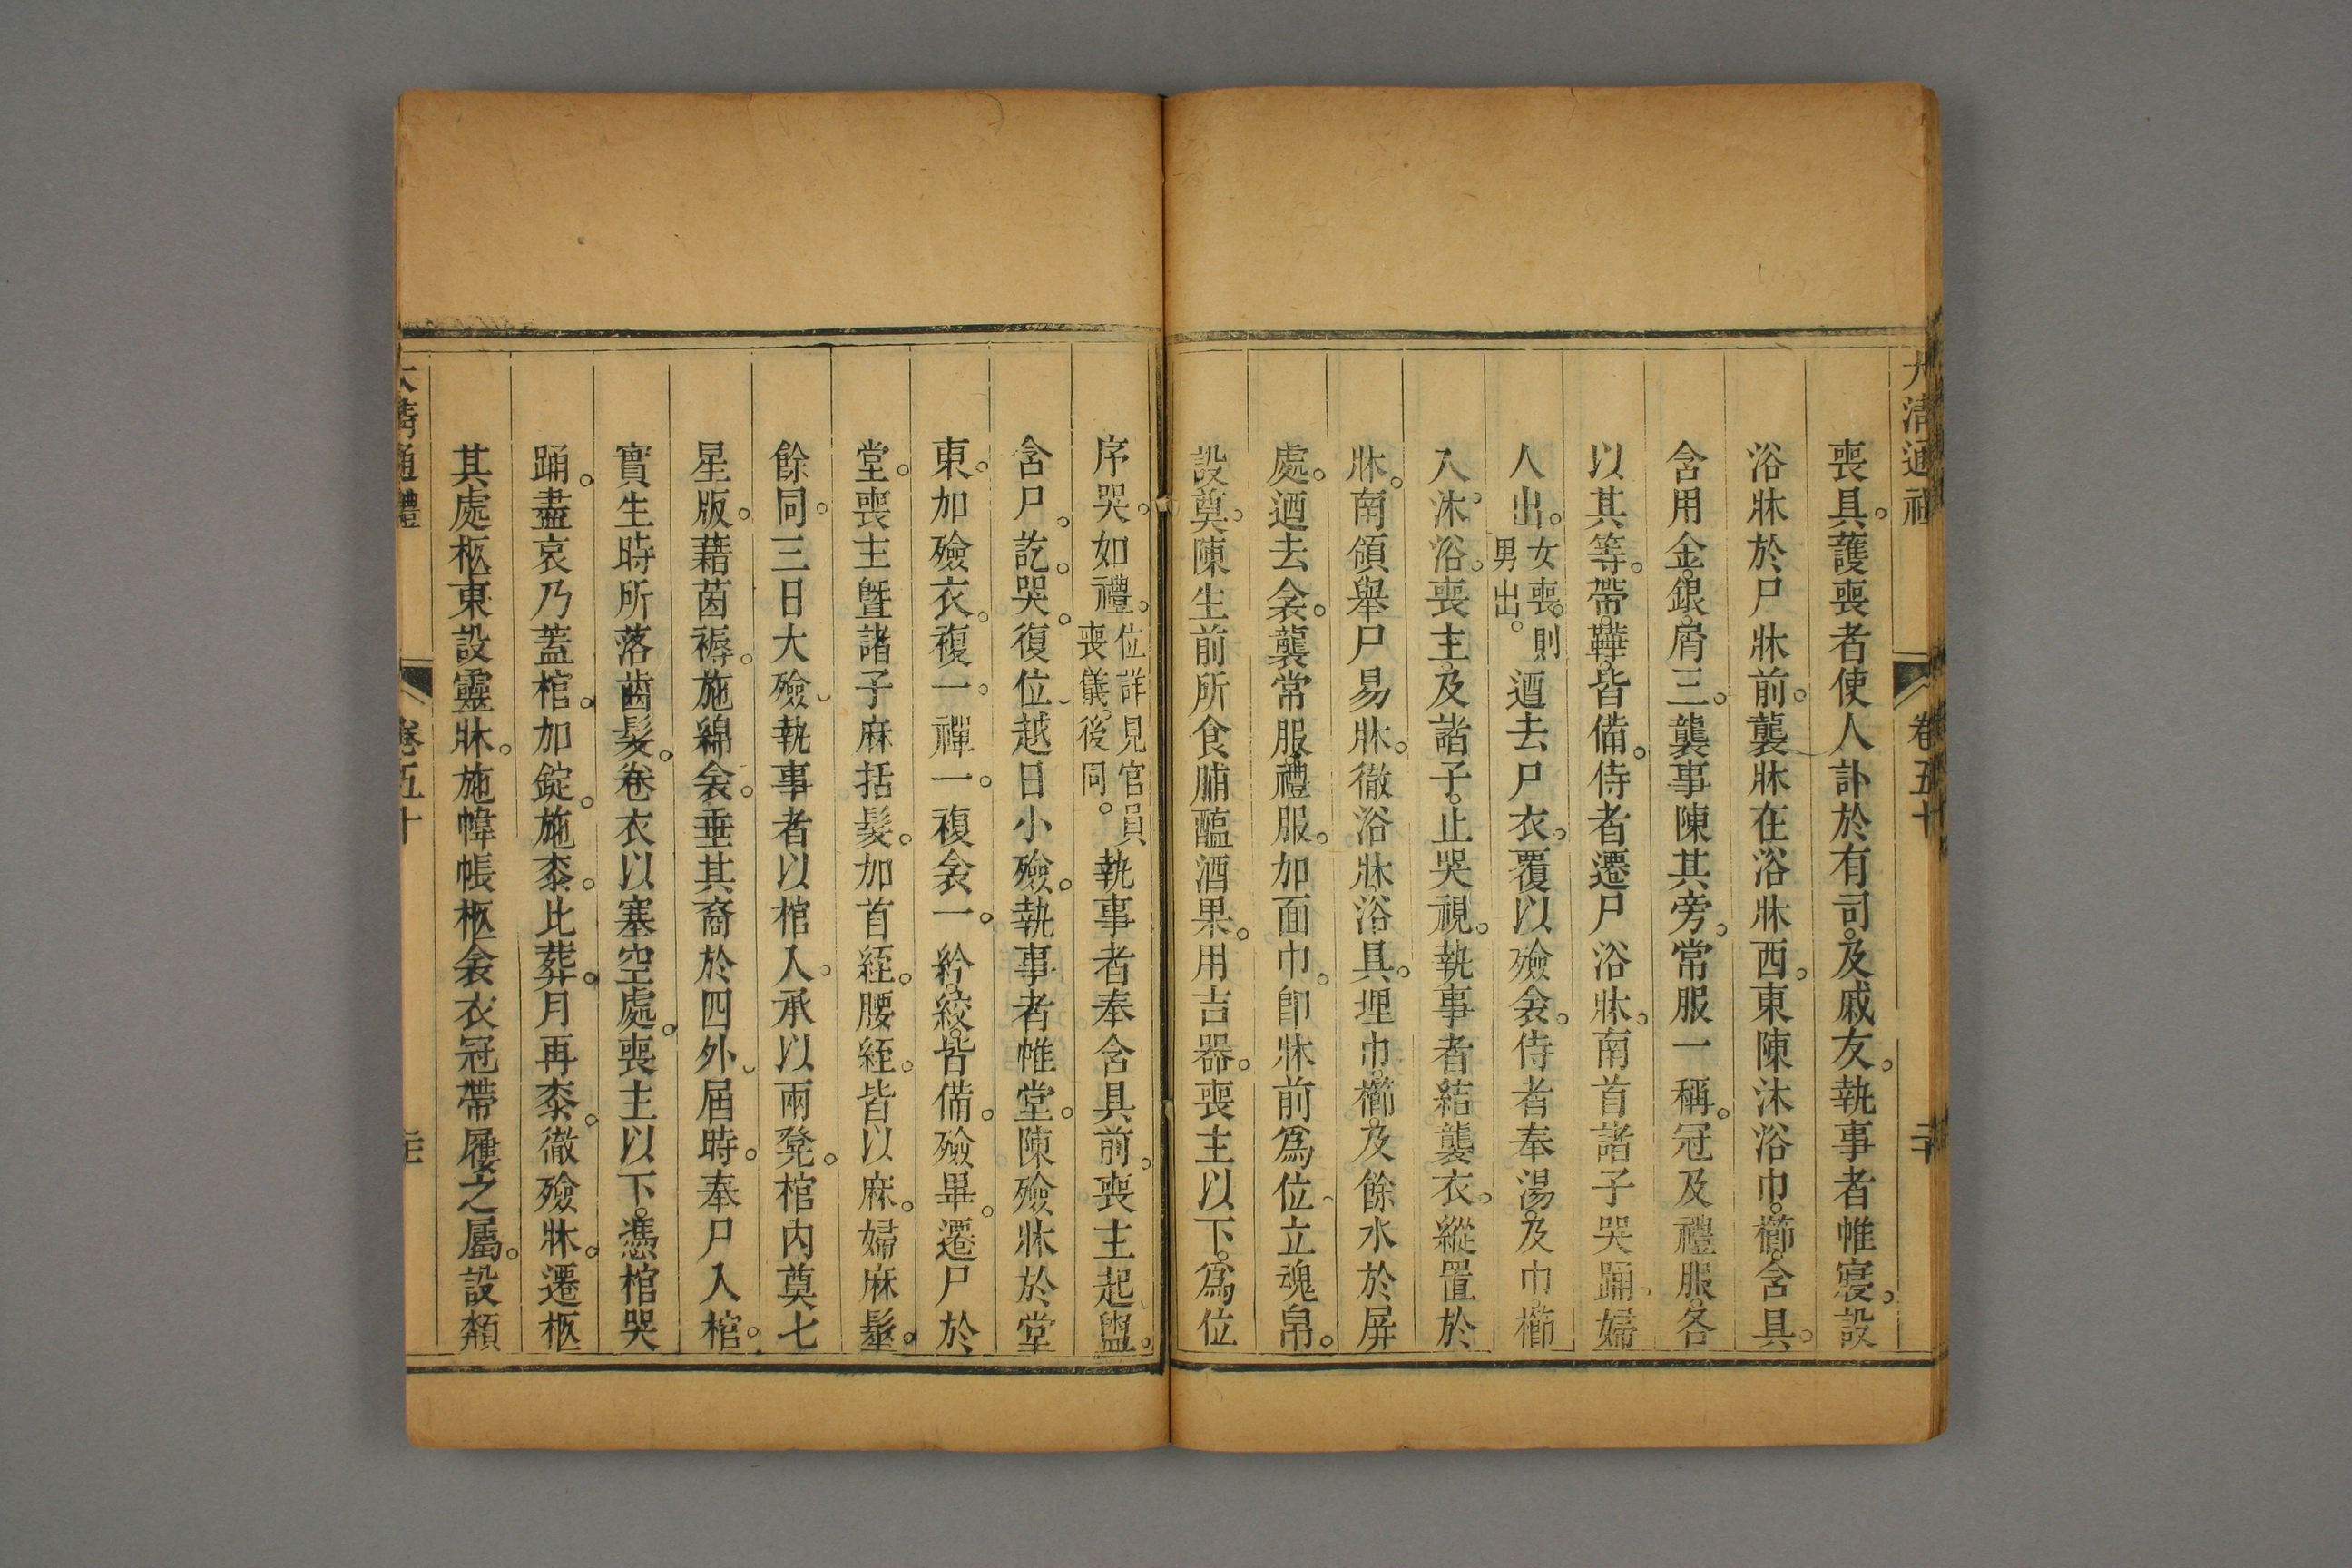 大清通禮 卷五十 二十
喪具。䕶喪者使人訃於有司。及戚友。執事者帷寝。設
浴牀於尸牀前。襲牀在浴牀西。東陳沐浴巾。櫛。含具。
含用金。銀。屑三。襲事陳其旁。常服一稱。冠及禮服。各
以其等。帶。鞾。皆備。侍者遷尸浴牀。南首諸子哭踊。婦
人出。女喪。則男出。迺去尸衣。覆以殮衾。侍者奉湯。及巾。櫛
入。沐。浴。喪主。及諸子。止哭視。執事者結襲衣。縱置於
牀。南領舉尸易牀。徹浴牀。浴具。埋巾。櫛。及餘水於屏
處。迺去衾。襲常服。禮服。加面巾。卽牀前爲位。立魂帛。
設奠。陳生前所食脯醢酒果。用吉器。喪主以下。爲位
序哭。如禮。位詳見官員喪儀。後同。執事者奉含具前。喪主起。盥。
含尸。訖。哭。復位。越日小殮。執事者帷堂。陳殮牀於堂
東。加殮衣。複一。禪一。複衾一。紟。絞。皆備。殮畢。遷尸於
堂。喪主曁諸子麻括髮。加首絰。腰絰。皆以麻。婦麻髽。
餘同。三日大殮。執事者以棺入。承以兩凳。棺内奠七
星版。藉茵褥。施綿衾。垂其裔於四外。屆時。奉尸入棺。
實生時所落齒髮。卷衣以塞空處。喪主以下。憑棺哭
踊。盡哀乃蓋棺。加錠。施桼。比葬。月再桼。徹殮牀。遷柩
其處柩東設靈牀。施幃帳枕衾衣冠帶屨之屬。設頮
大清通禮 卷五十